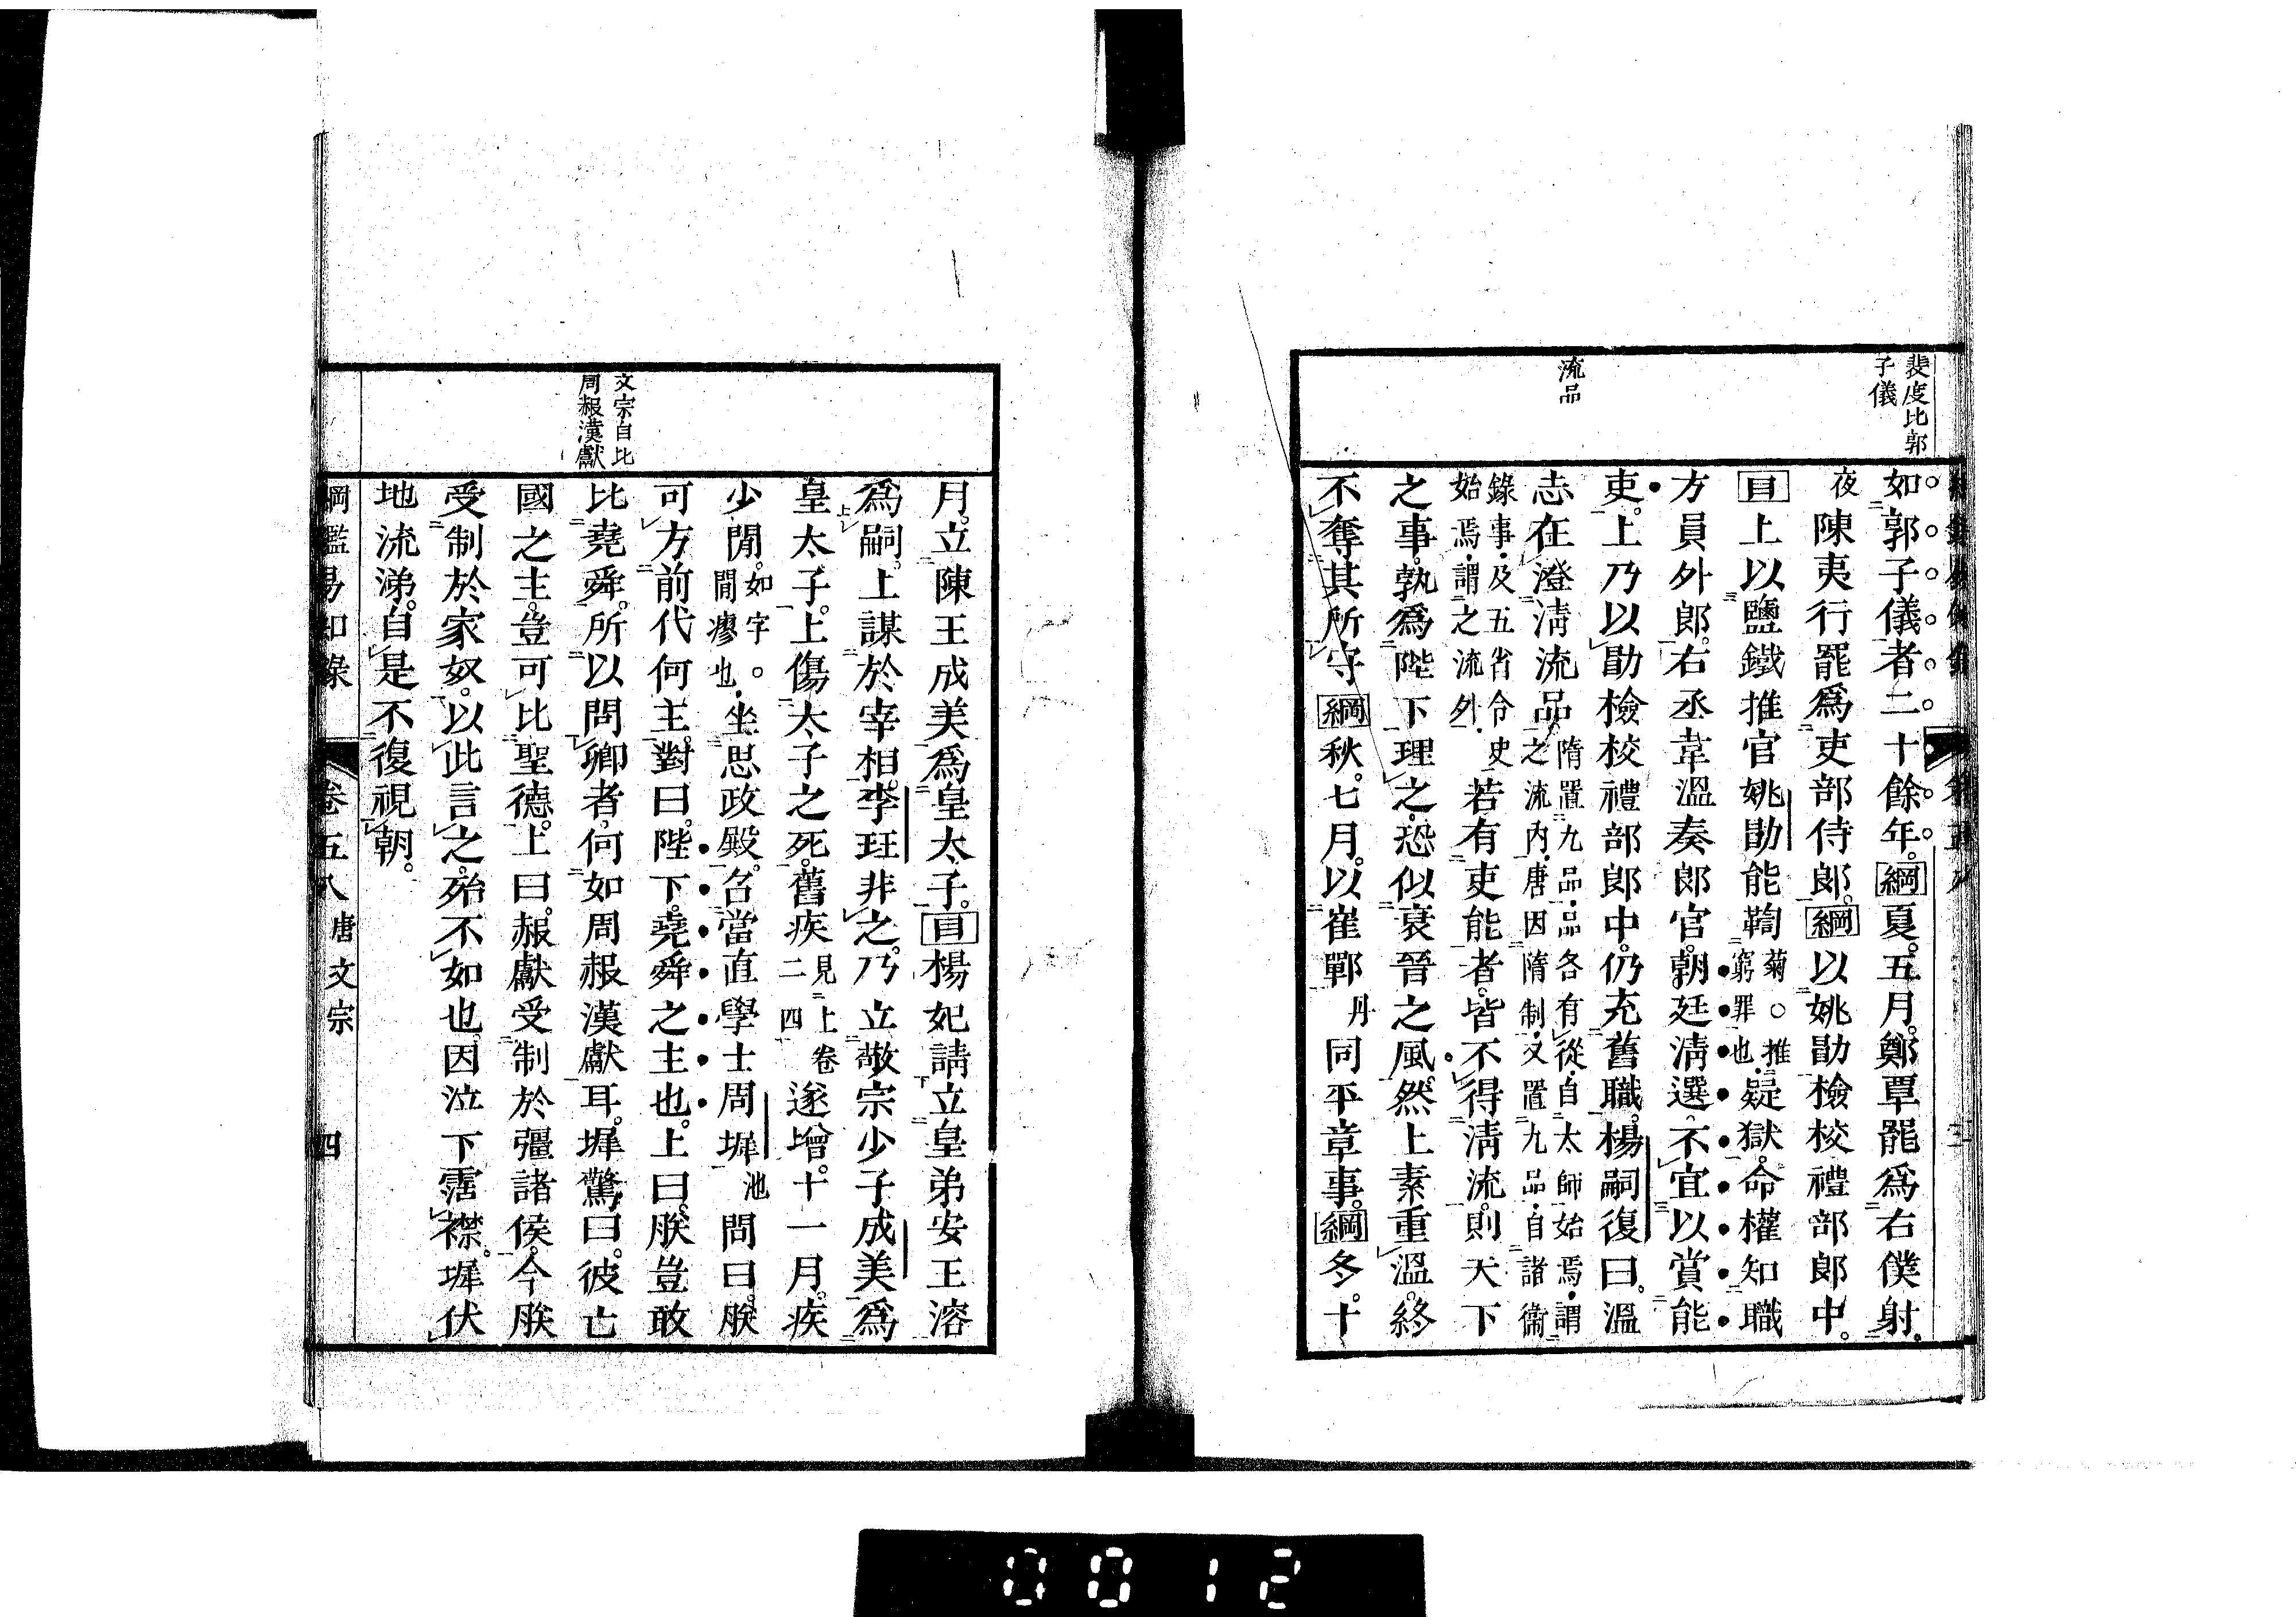 裴度比郭
子儀
流品
如郭子儀者二十餘年。綱夏。五月。鄭覃罷爲右僕射。
夜陳夷行罷爲吏部侍郎。綱以姚勖檢校禮部郎中。
目上以鹽鐵推官姚勖能鞫菊。推窮罪也。疑獄。命權知職
方員外郎。右丞韋溫奏郎官。朝廷淸選。不宜以賞能
吏。上乃以勖檢校禮部郎中。仍充舊職。楊嗣復曰。溫
志在澄淸流品。隋置九品。品各有從。自太師始焉。謂之流內。唐因隋制。又置九品。自諸衞
錄事。及五省令史始焉。謂之流外。若有吏能者。皆不得淸流。則天下
之事。孰爲陛下理之。恐似衰晉之風。然上素重溫。終
不奪其所守綱秋。七月。以崔鄲丹同平章事。綱冬。十
文宗自比
周赧漢獻
月。立陳王成美爲皇太子。目楊妃請立皇弟安王溶
爲嗣。上謀於宰相。李珏非之。乃立敬宗少子成美爲
皇太子。上傷太子之死。舊疾見上卷二四遂增。十一月。疾
少閒。如字。閒瘳也。坐思政殿。召當直學士周墀池問曰。朕
可方前代何主。對曰。陛下。堯舜之主也。上曰。朕豈敢
比堯舜。所以問卿者。何如周赧漢獻耳。墀驚曰。彼亡
國之主。豈可比聖德。上曰。赧獻受制於彊諸侯。今朕
受制於家奴。以此言之。殆不如也。因泣下霑襟。墀伏
地流涕。自是不復視朝。
綱鑑易知錄 卷五八 唐文宗 四
0012